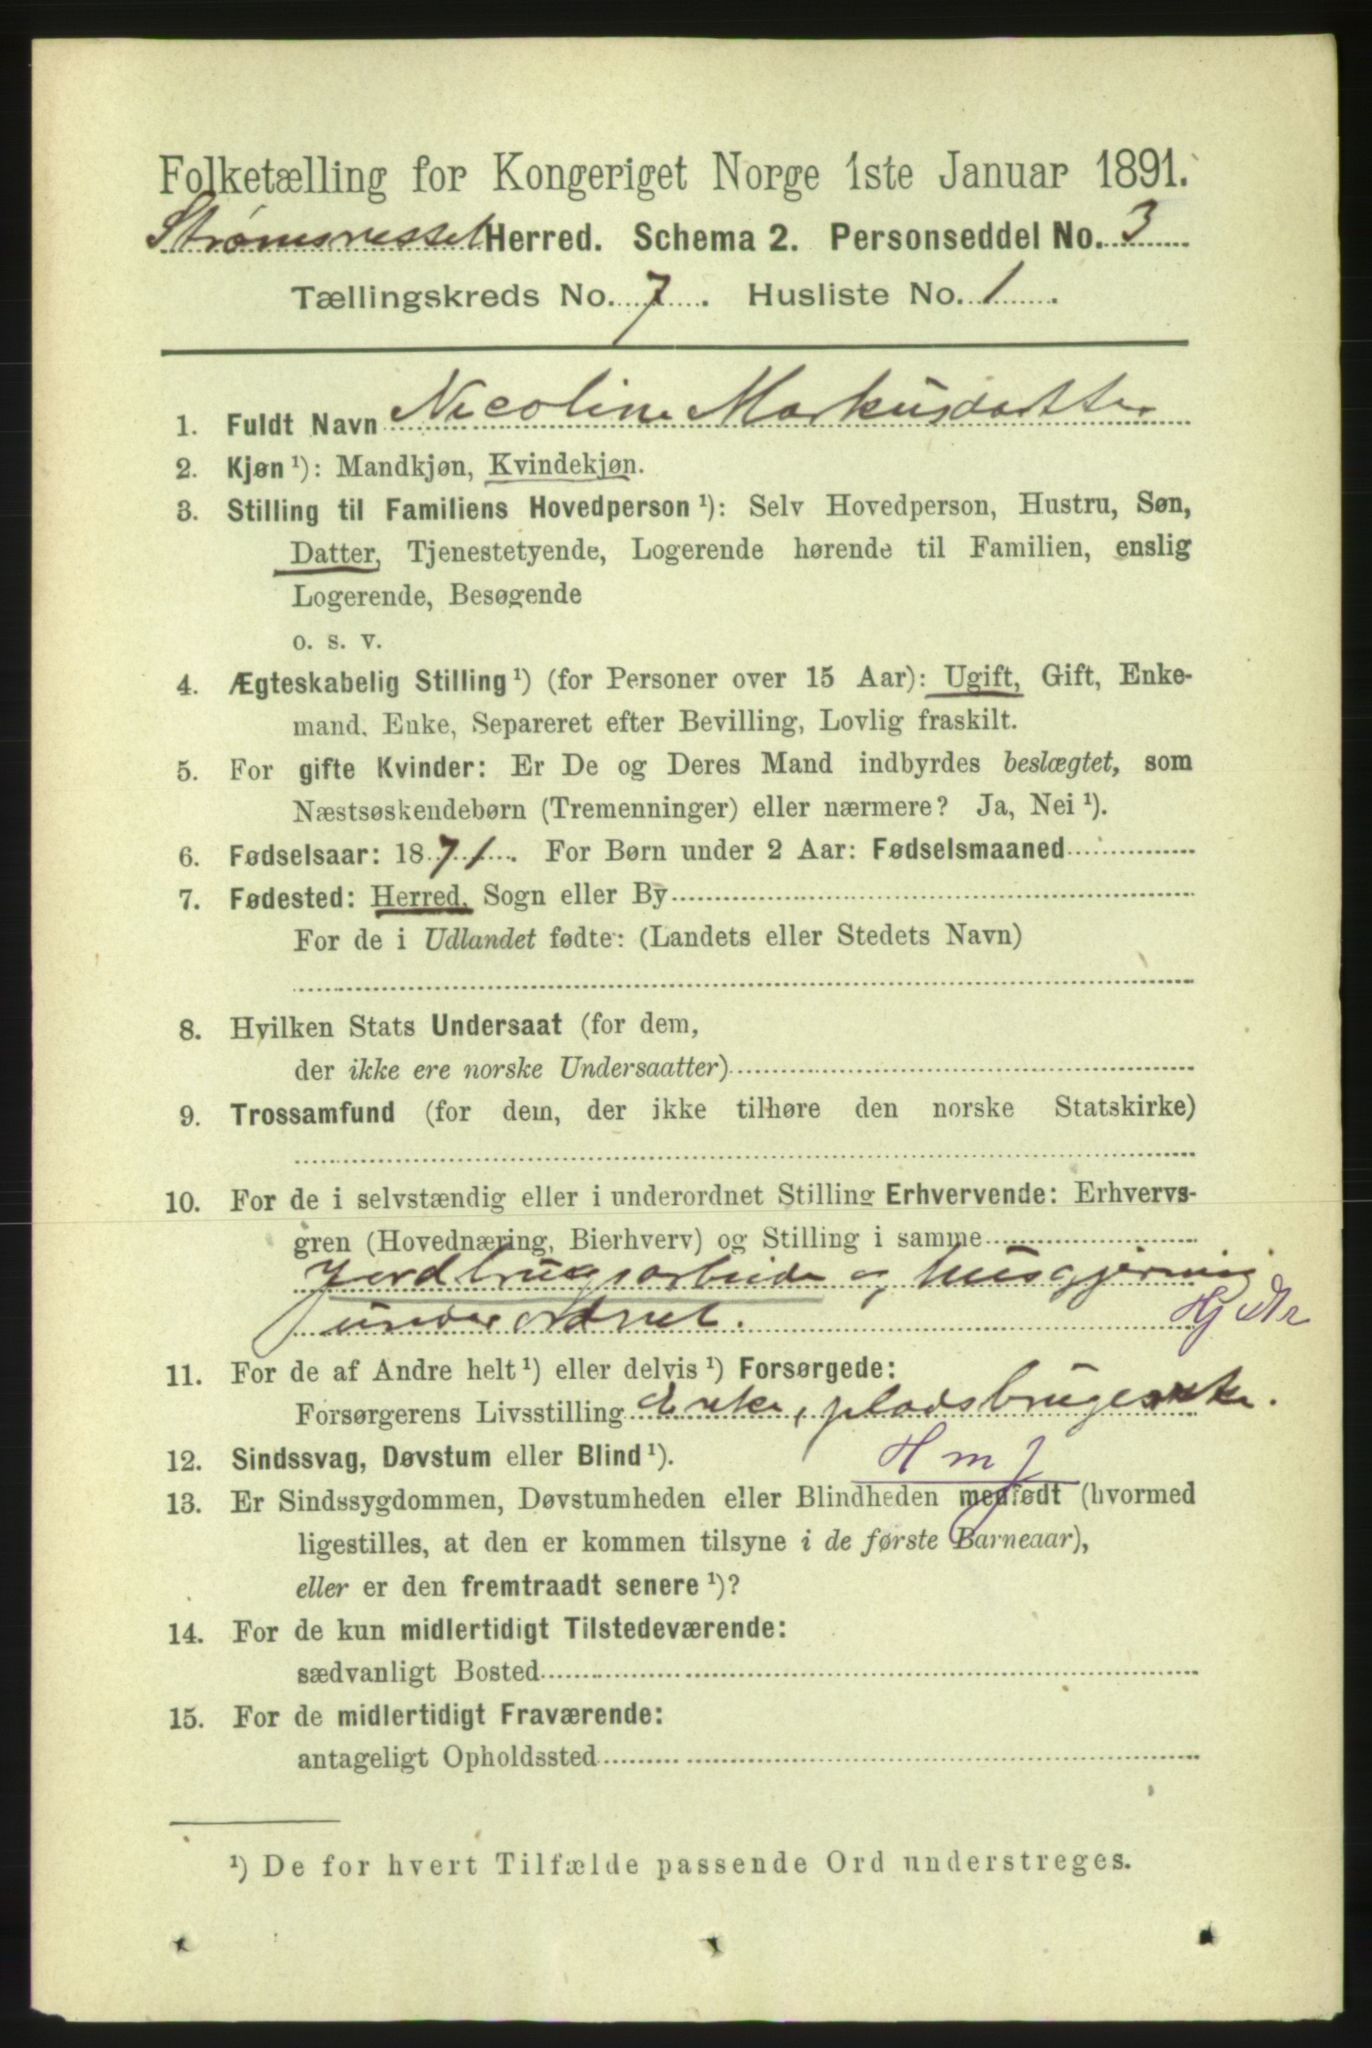 Folketælling for Kongeriget Norge 1ste Januar 1891.
Strømsness Herred. Schema 2. Personseddel No. 3
Tællingskreds No. 7. Husliste No. 1.
1. Fuldt Navn Nicoline Markusdatter
2. Kjøn ¹): Mandkjøn, Kvindekjøn.
3. Stilling til Familiens Hovedperson ¹): Selv Hovedperson, Hustru, Søn,
Datter, Tjenestetyende, Logerende hørende til Familien, enslig
Logerende, Besøgende
o. s. v.
4. Ægteskabelig Stilling ¹) (for Personer over 15 Aar): Ugift, Gift, Enke-
mand, Enke, Separeret efter Bevilling, Lovlig fraskilt.
5. For gifte Kvinder: Er De og Deres Mand indbyrdes beslægtet, som
Næstsøskendebørn (Tremenninger) eller nærmere? Ja, Nei ¹).
6. Fødselsaar: 1871. For Børn under 2 Aar: Fødselsmaaned
7. Fødested: Herred, Sogn eller By
For de i Udlandet fødte: (Landets eller Stedets Navn)
8. Hvilken Stats Undersaat (for dem,
der ikke ere norske Undersaatter)
9. Trossamfund (for dem, der ikke tilhøre den norske Statskirke)
10. For de i selvstændig eller i underordnet Stilling Erhvervende: Erhvervs-
gren (Hovednæring, Bierhverv) og Stilling i samme
Jordbrugsarbeide og husgjerning
underordnet.
11. For de af Andre helt ¹) eller delvis ¹) Forsørgede:
Forsørgerens Livsstilling Enke, pladsbrugerske.
12. Sindssvag, Døvstum eller Blind ¹).
H m J
13. Er Sindssygdommen, Døvstumheden eller Blindheden medfødt (hvormed
ligestilles, at den er kommen tilsyne i de første Barneaar),
eller er den fremtraadt senere ¹)?
14. For de kun midlertidigt Tilstedeværende:
sædvanligt Bosted
15. For de midlertidigt Fraværende:
antageligt Opholdssted
¹) De for hvert Tilfælde passende Ord understreges.